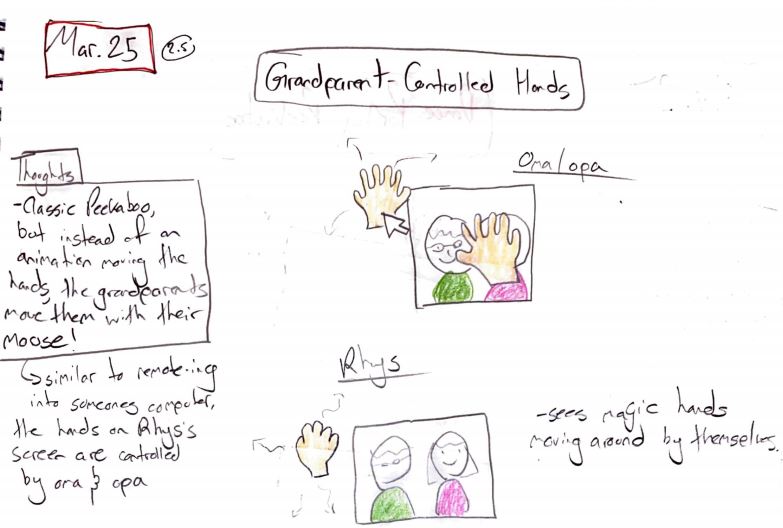 Mar. 25
2.5
Grandparent-Controlled Hands
Thoughts
-Classic Peekaboo,
but instead of an
animation moving the
hands, the grandparents
move them with their
moose!
↳similar to remote-ing
into someones computer,
the hands on Rhys's
screen are controlled
by oma & opa
Oma/opa
Rhys
-sees magic hands
moving around by themselves.